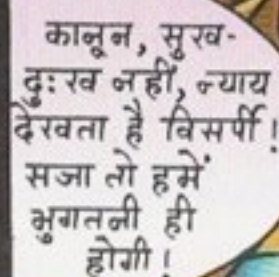 कानून, सुख-
दुःख नहीं, न्याय
देखता है विसर्पी!
सजा तो हमें
भुगतनी ही
होगी!